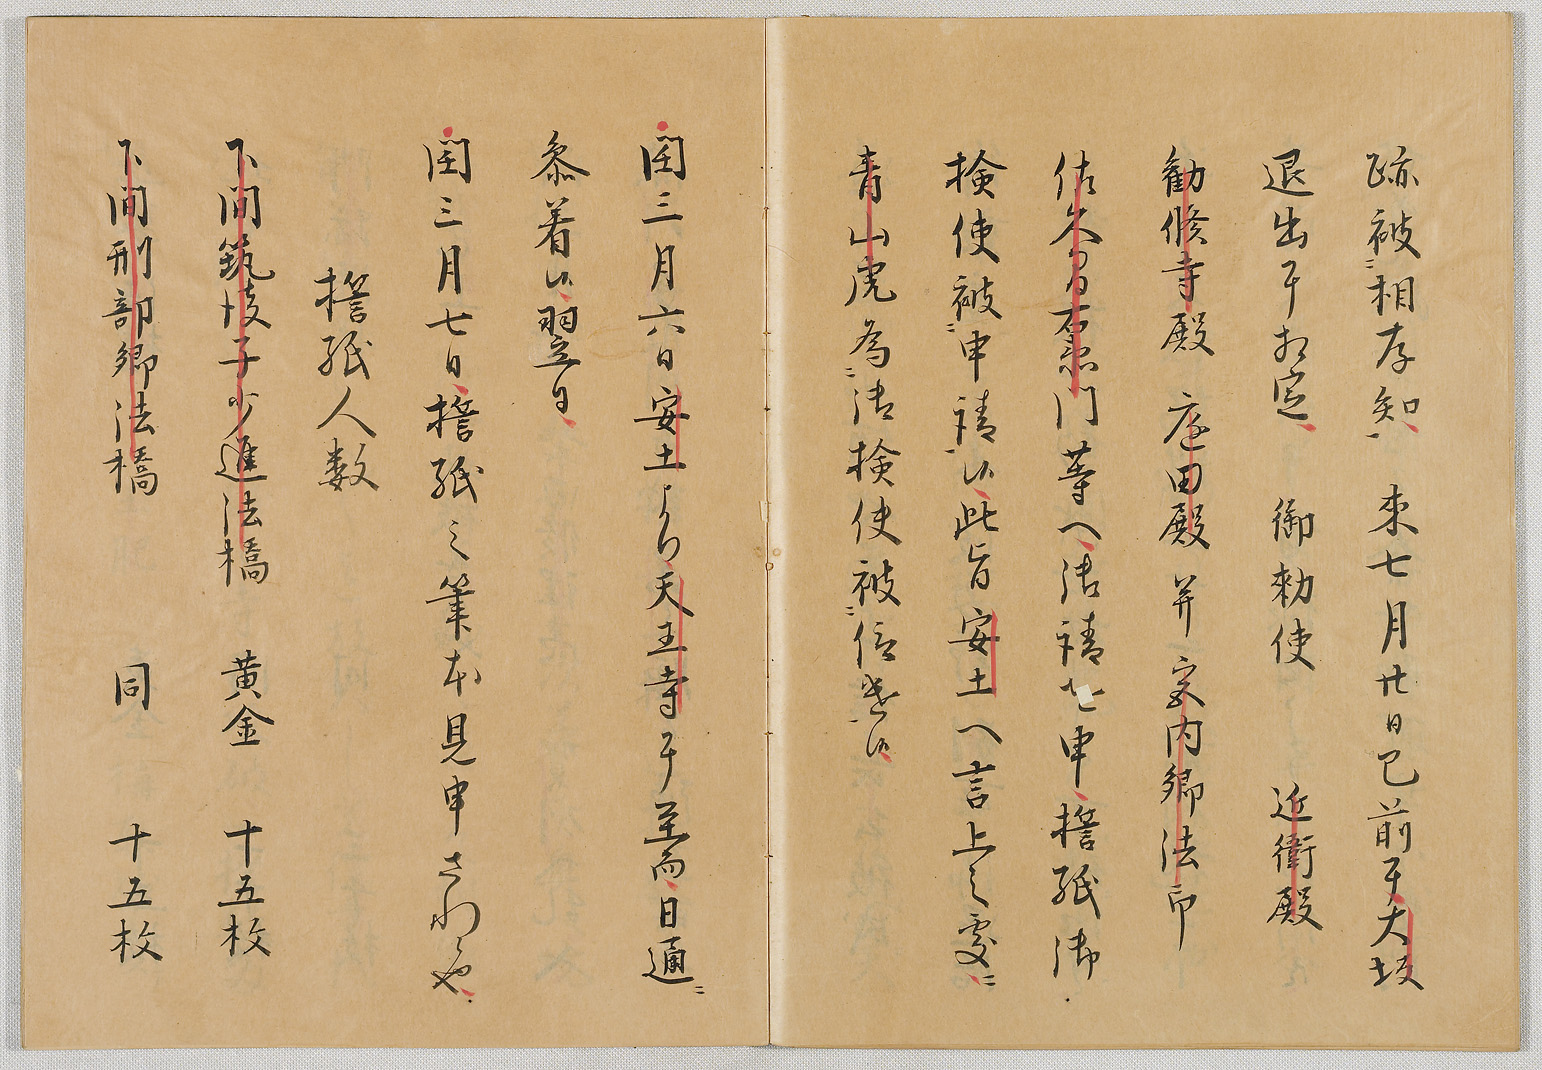 跡被ﾆ相存知、来七月廿日已前于大坂
退出于相定、御勅使 近衛殿
勧修寺殿 庭田殿 并ニ 宮内卿法印
佐久間右衛門等ヘ御請 申、誓紙御
検使被ﾆ申請候、此旨安土へ言上之処ﾆ、
青山虎為ﾆ御検使被ﾆ仰遣候、
閏三月六日安土より、天王寺于至而、日通ﾆ
参着候、翌日、
閏三月七日、誓紙之筆本見申さるゝ也、
誓紙人数
下間筑後子少進法橋 黄金 十五枚
下間刑部卿法橋 同 十五枚